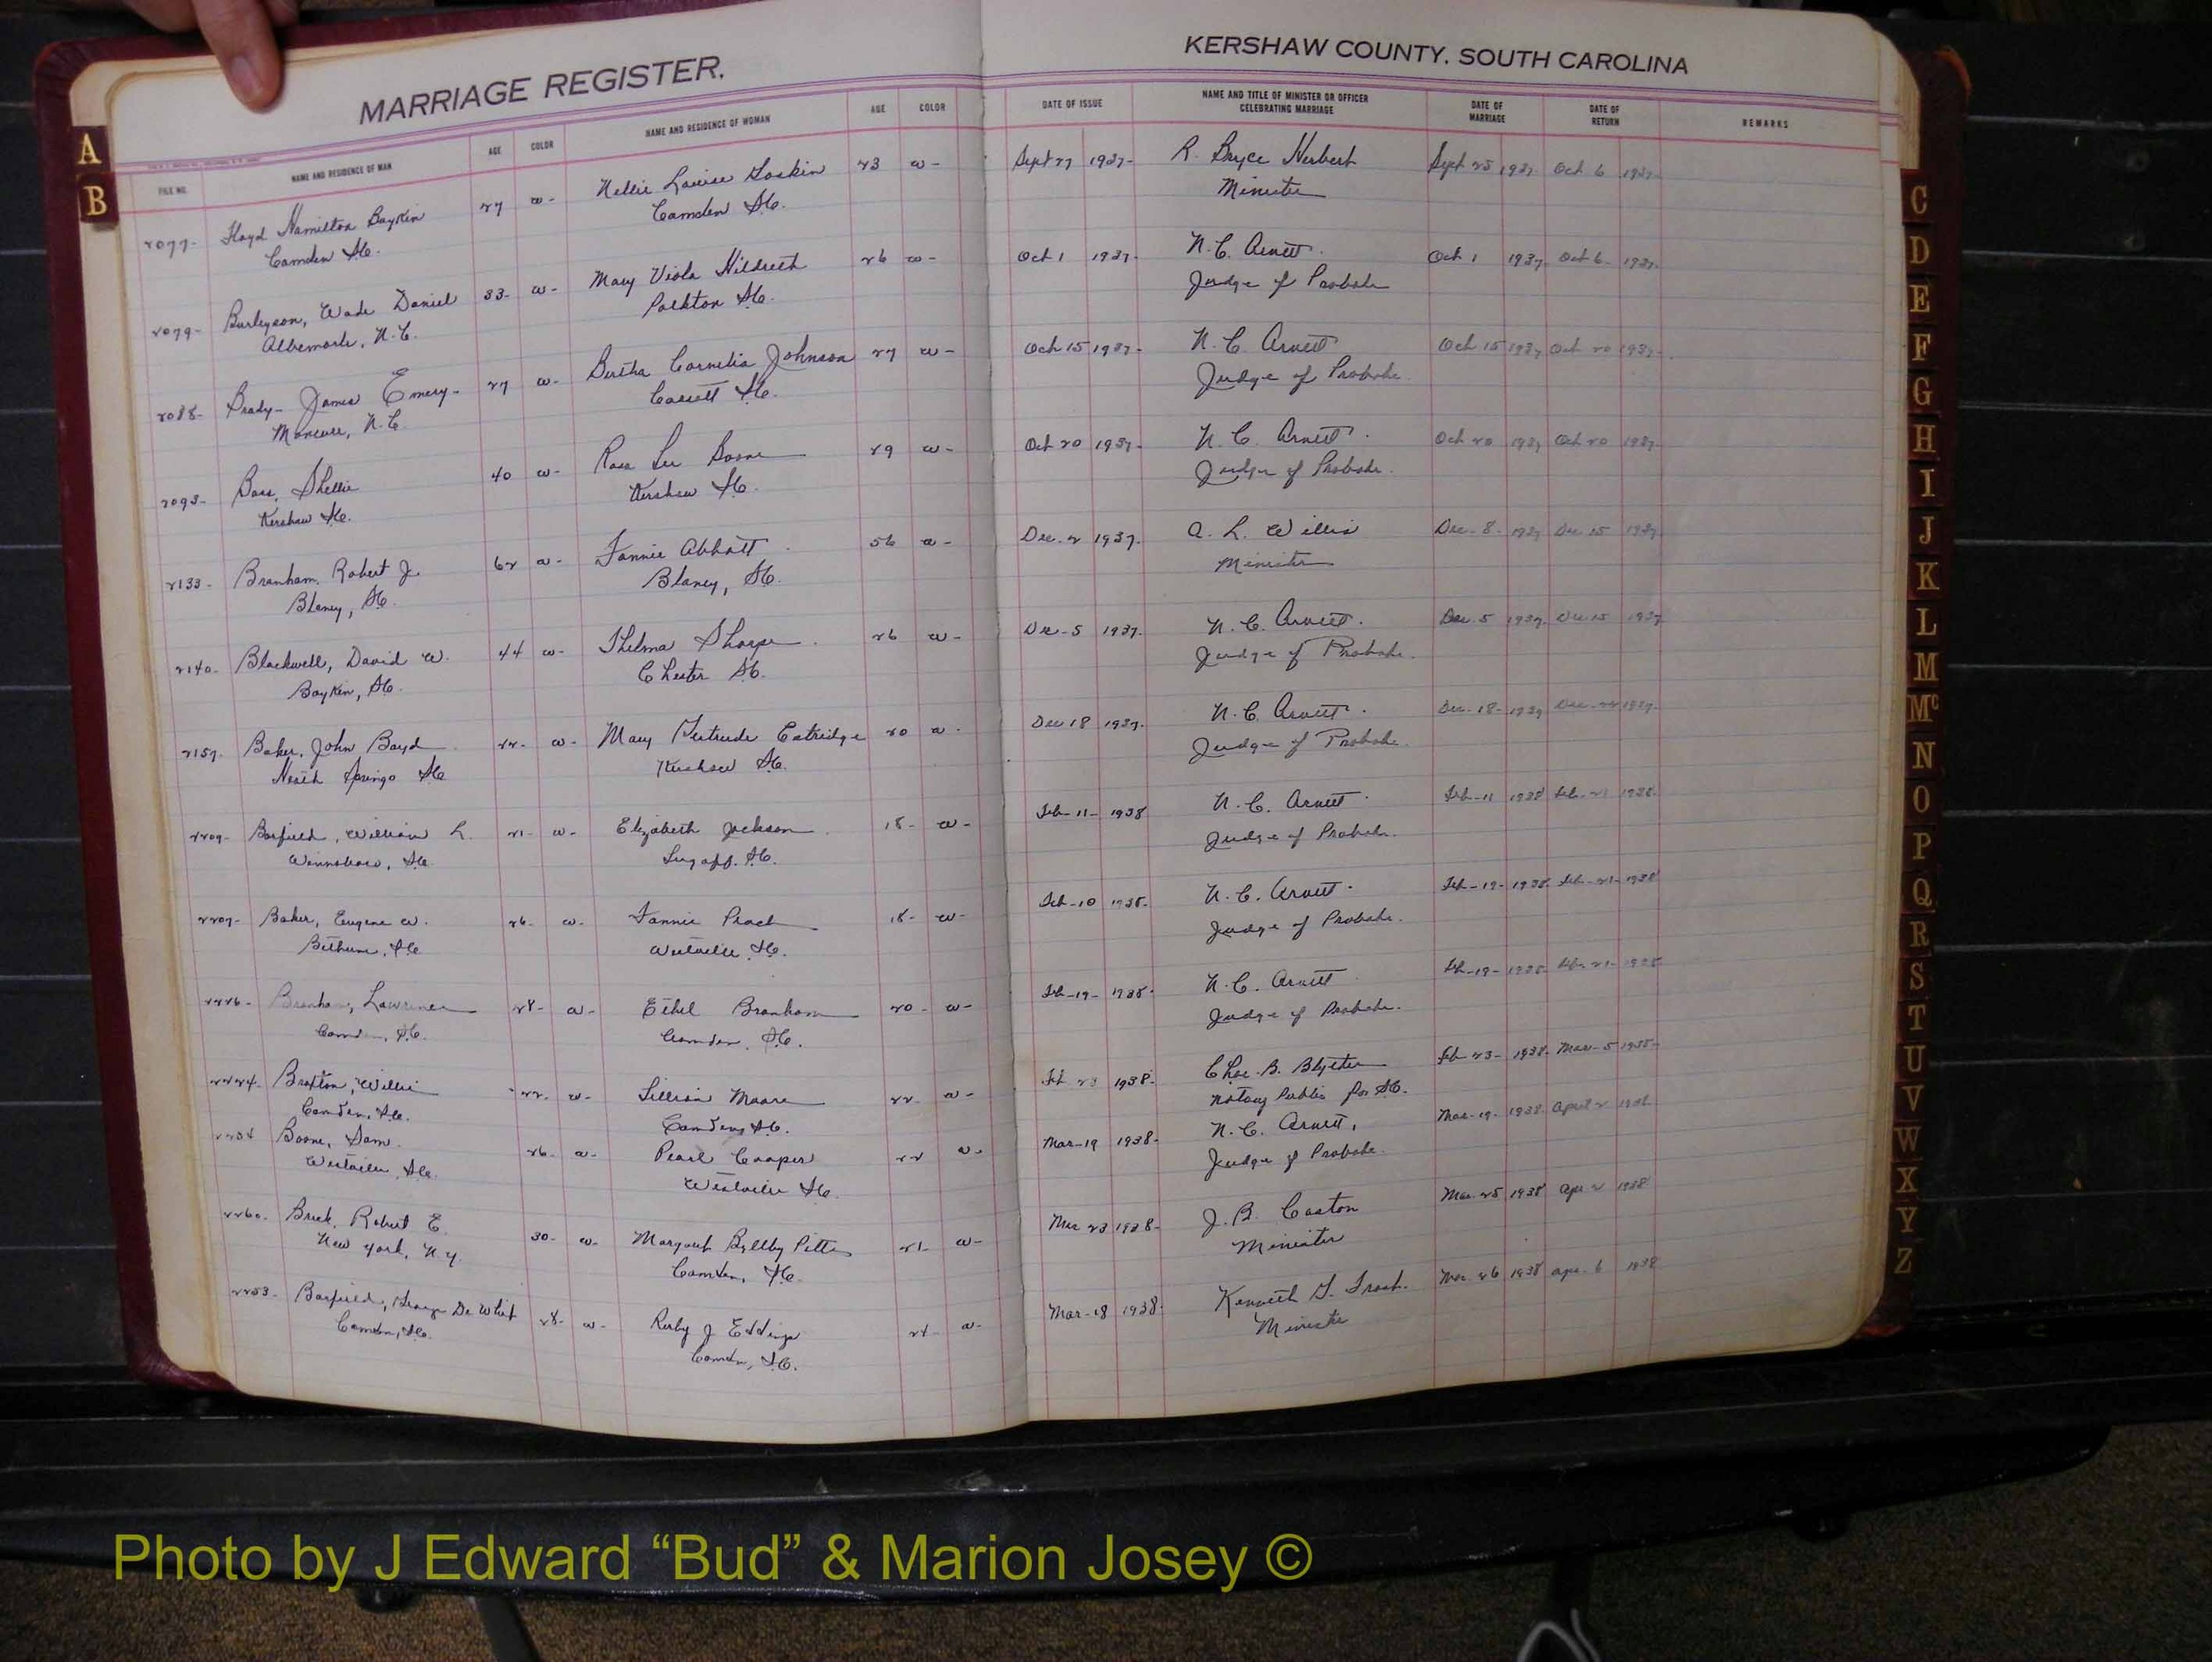 MARRIAGE REGISTER.
KERSHAW COUNTY, SOUTH CAROLINA
FILE NO. NAME AND RESIDENCE OF MAN AGE COLOR NAME AND RESIDENCE OF WOMAN AGE COLOR DATE OF ISSUE NAME AND TITLE OF MINISTER OR OFFICER CELEBRATING MARRIAGE DATE OF MARRIAGE DATE OF RETURN REMARKS
2077- Floyd Hamilton Boykin 27 w- Nellie Louise Goskin 23 w- Sept 27 1937- R. Bryce Herbert Sept 25 1937. Oct 6 1937-
Camden S.C. Camden S.C. Minister
2079- Burleyson, Wade Daniel 33- w- Mary Viola Hildreth 26 w- Oct 1 1937- N.C. Arnett. Oct 1 1937. Oct 6- 1937-
Albemarle, N.C. Polkton S.C. Judge of Probate
2088- Brady- James Emery- 27 w- Bertha Cornelia Johnson 27 w- Oct 15 1937- N.C. Arnett Oct 15 1937 Oct 20 1937-
N.C. Cassatt S.C. Judge of Probate
2093- Shellie 40 w- Rosa Lee Boone 29 w- Oct 20 1937- N.C. Arnett. Oct 20 1937 Oct 20 1937-
Kershaw S.C. Kershaw S.C. Judge of Probate.
2133- Branham, Robert J. 62 w- Fannie Abbott 56 w- Dec. 2 1937- A. L. Willis Dec- 8- 1937 Dec 15 1937
Blaney, S.C. Blaney, S.C. Minister
2140- Blackwell, David W. 44 w- Thelma Sharpe 26 w- Dec-5 1937- N.C. Arnett. Dec. 5 1937- Dec 15 1937
Boykin, S.C. Chester S.C. Judge of Probate.
2157- Baker, John Boyd 22- w- Mary Gertrude Eatridge 20 w- Dec 18 1937- N.C. Arnett. Dec-18- 1937 Dec-22 1937-
Heath Springs S.C. Kershaw S.C. Judge of Probate.
2209- Barfield, William L. 21- w- Elizabeth Jackson 18- w- Feb-11- 1938 N.C. Arnett. Feb-11 1938 Feb-21 1938-
Winnsboro, S.C. Lugoff, S.C. Judge of Probate.
2207- Baker, Eugene W. 26- w- Fannie Peach 18- w- Feb-10 1938- N.C. Arnett. Feb-12- 1938. Feb-21- 1938
Bethune, S.C. Westville S.C. Judge of Probate.
2226- Branham, Lawrence 28- w- Ethel Branham 20- w- Feb-19- 1938- N.C. Arnett Feb-19- 1938- Feb-21- 1938
Camden, S.C. Camden, S.C. Judge of Probate.
2224- Braxton, Willie 22- w- Lillian Moore 22- w- Feb 23 1938- Chas. B. Feb 23- 1938- Mar-5 1938-
Camden, S.C. Camden, S.C. Notary Public for S.C.
Boone, Sam. 26- w- Pearl Cooper 22 w- Mar-19 1938- N.C. Arnett, Mar-19- 1938 April 2 1938
Westville, S.C. Westville S.C. Judge of Probate.
2260- Robert E. 30- w- Margaret Pitts 21 w- Mar 23 1938- J.B. Caston Mar. 25 1938 Apr. 2 1938
New York, N.Y. Camden, S.C. Minister
2253- Barfield, 28- w- Ruby J Eddings 24- w- Mar-18 1938- Kenneth Mar. 26 1938 Apr. 6 1938
Camden, S.C. Camden, S.C. Minister
A
B
C
D
E
F
G
H
I
J
K
L
M
Mc
N
O
P
Q
R
S
T
U
V
W
X
Y
Z
Photo by J Edward “Bud” & Marion Josey ©